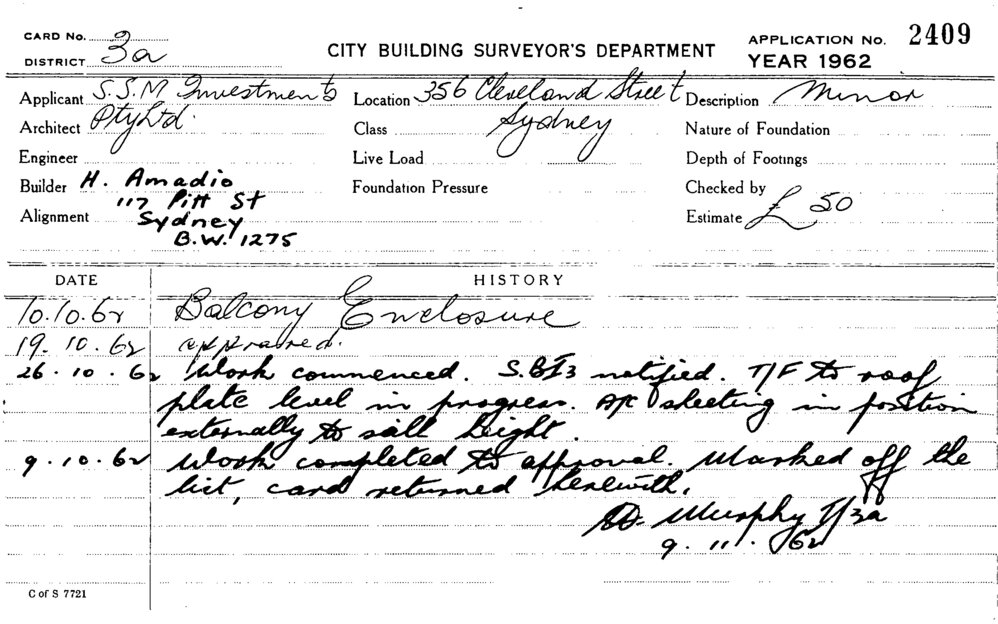 CARD No.
DISTRICT 3a
CITY BUILDING SURVEYOR'S DEPARTMENT
APPLICATION No. 2409
YEAR 1962
Applicant S.S.M Investments
Location 356 Cleveland Street
Description Minor
Architect Pty Ltd.
Class Sydney
Nature of Foundation
Engineer
Live Load
Depth of Footings
Builder H. Amadio
Foundation Pressure
Checked by
117 Pitt St
Alignment Sydney
Estimate £ 50
B.W. 1275
DATE HISTORY
10.10.62 Balcony Enclosure
19.10.62 approved.
26.10.62 Work commenced. S.BI3 notified. T/F to roof
plate level in progress. A/C sheeting in position
externally to sill height.
9.10.62 Work completed to approval. Marked off the
list, card returned herewith.
Murphy I/3a
9.11.62
C of S 7721